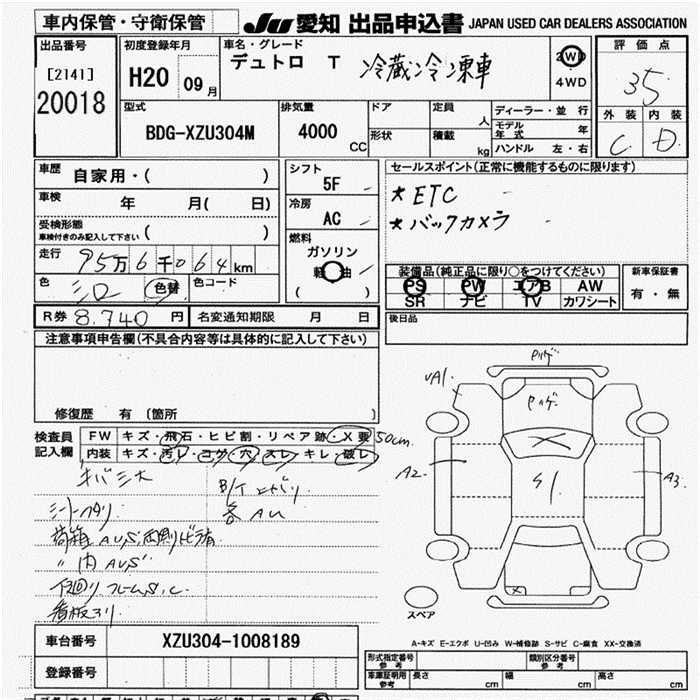 車内保管・守衛保管 JU 愛知 出品申込書 JAPAN USED CAR DEALERS ASSOCIATION
出品番号 初度登録年月 車名・グレード 評価点
[2141] H20 09月 デュトロ T 冷蔵冷凍車 2WD 35
20018 4WD
外装 内装
型式 排気量 ドア 定員 人 ディーラー・並 行 C D
BDG-XZU304M 4000 CC 形状 積載 kg モデル年式 年
ハンドル 左・右
車歴 自家用・( ) シフト 5F セールスポイント(正常に機能するものに限ります)
車検 年 月( 日) 冷房 AC ★ETC
受検形態 車検付きのみ記入して下さい ( ) 燃料 ★バックカメラ
走行 万 6千064km ガソリン
軽油 装備品(純正品に限り○をつけてください) 新車保証書
色 シロ 色替 色コード ( ) PS PW エアB AW 有・無
SR ナビ TV カワシート
R券 8.740円 名変通知期限 月 日 後日品
注意事項申告欄(不具合内容等は具体的に記入して下さい)
修復歴 有 〔箇所 〕
検査員記入欄 FW キズ・飛石・ヒビ割・リペア跡・X要 50cm
内装 キズ・汚レ・コゲ・穴・スレ・キレ・破レ
シートヘタリ 各AU
荷箱 AUS
〃 内 AUS
下回り フレームS.C
看板
サビ大
UA1
A2
A3
S1
X
スペア
A-キズ E-エクボ U-凹み W-補修跡 S-サビ C-腐食 XX-交換済
車台番号 XZU304-1008189
登録番号
型式指定番号 参考 類別区分番号 参考
車庫証明用 参考 長さ cm 幅 cm 高さ cm